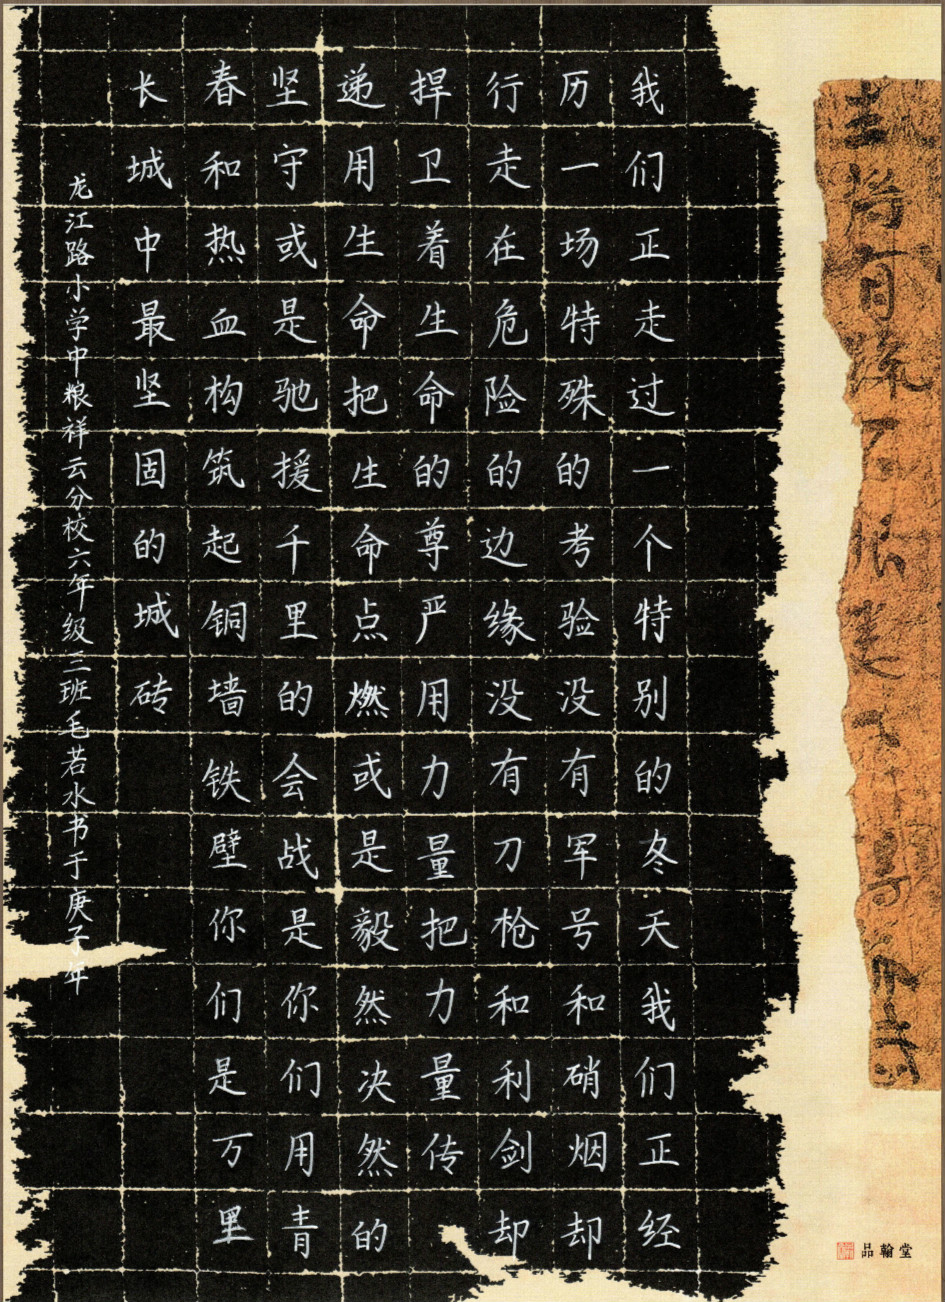 我们正走过一个特别的冬天我们正经
历一场特殊的考验没有军号和硝烟却
行走在危险的边缘没有刀枪和利剑却
捍卫着生命的尊严用力量把力量传
递用生命把生命点燃或是毅然决然的
坚守或是驰援千里的会战是你们用青
春和热血构筑起铜墙铁壁你们是万里
长城中最坚固的城砖
龙江路小学中粮祥云分校六年级三班毛若水书于庚子年
品翰堂